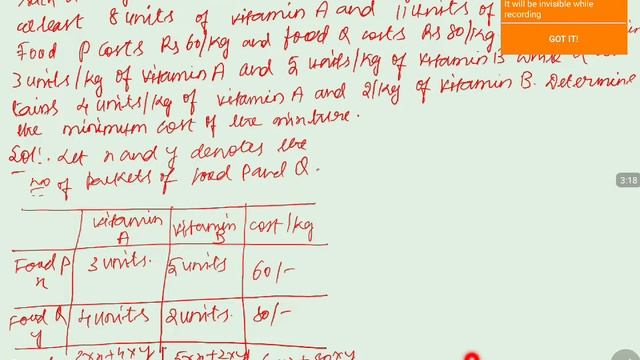 atleast 8 units of vitamin A and 11 units of
Food P costs Rs 60/kg and food Q costs Rs 80/kg
3 units/kg of vitamin A and 5 units/kg of vitamin B while Q
tains 4 units/kg of vitamin A and 2/kg of vitamin B. Determine
the minimum cost of the mixture.
Sol:. Let x and y denotes the
no of packets of food P and Q.
vitamin A vitamin B cost/kg
Food P x 3 units. 5 units 60/-
Food Q y 4 units 2 units. 80/-
It will be invisible while
recording
GOT IT!
3:18